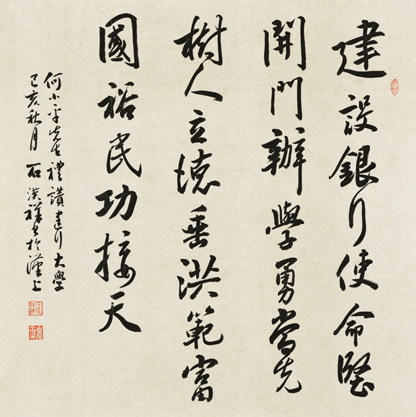 建設銀行使命堅
開門辦學勇當先
樹人立德垂洪範富
國裕民功接天
何小平先生禮讚建行大學
己亥秋月 石 祥書於漢上